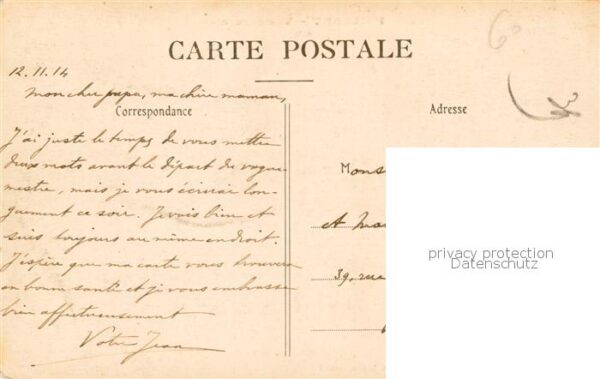 CARTE POSTALE
12.11.14
Mon cher papa, ma chère maman,
Correspondance
J'ai juste le temps de vous mettre
deux mots avant le départ du vague-
mestre, mais je vous écrirai lon-
guement ce soir. Je vais bien et
suis toujours au même endroit.
J'espère que ma carte vous trouvera
en bonne santé et je vous embrasse
bien affectueusement
Votre Jean
60
Adresse
Mons
et Ma
39, rue
privacy protection
Datenschutz